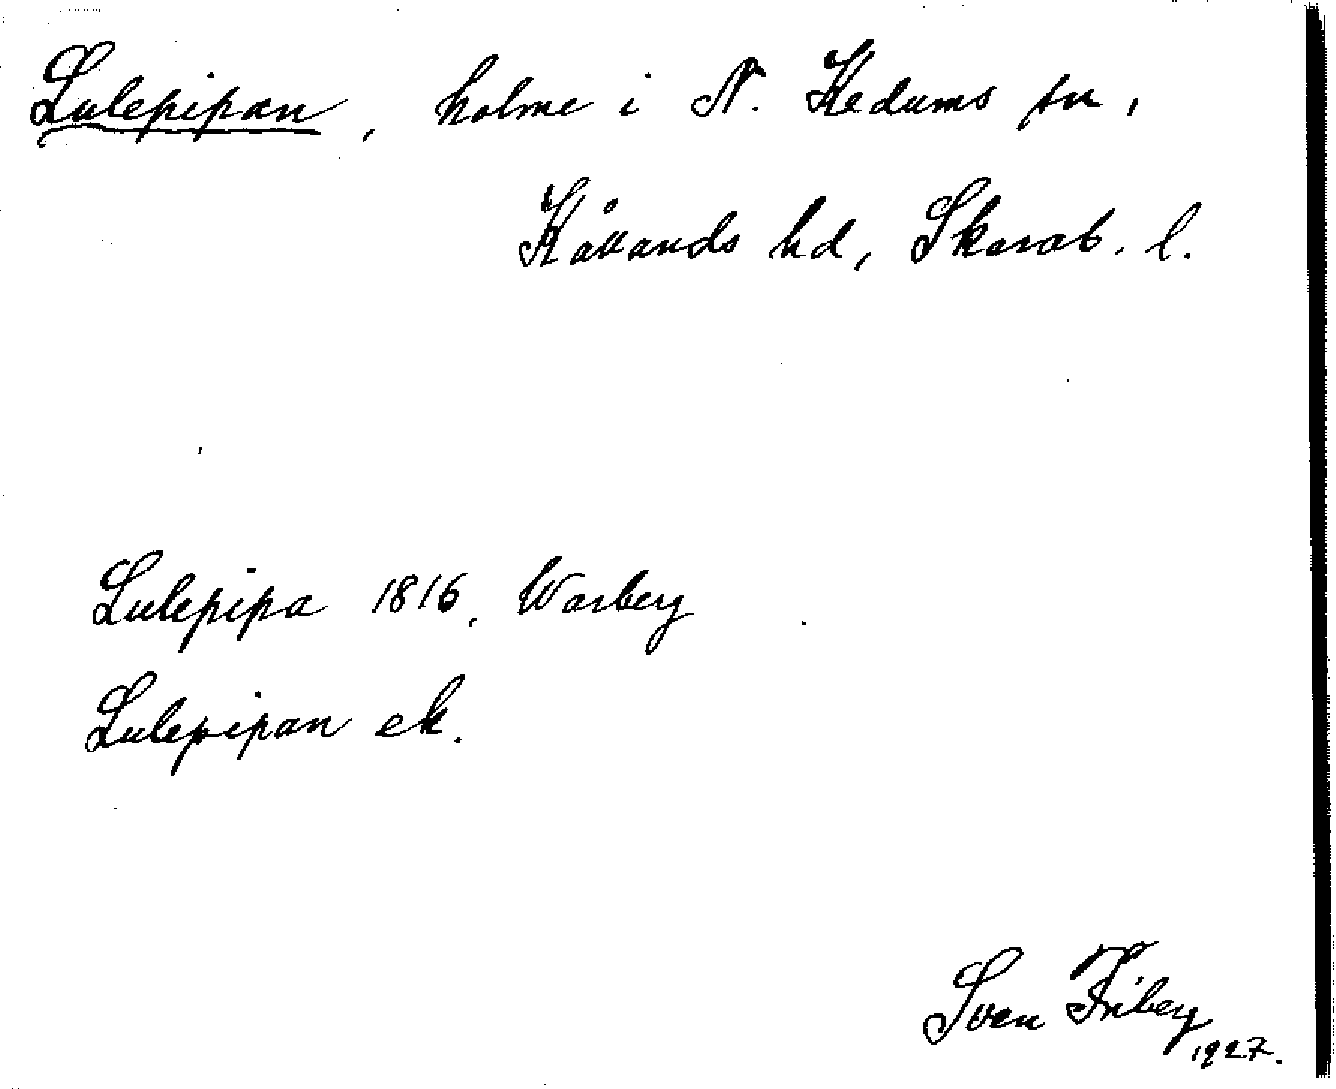 Lulepipan, holme i N. Kedums sn,
Kållands hd, Skarab. l.
Lulepipa 1816, Warberg
Lulepipan ek.
Sven Friberg
1927.